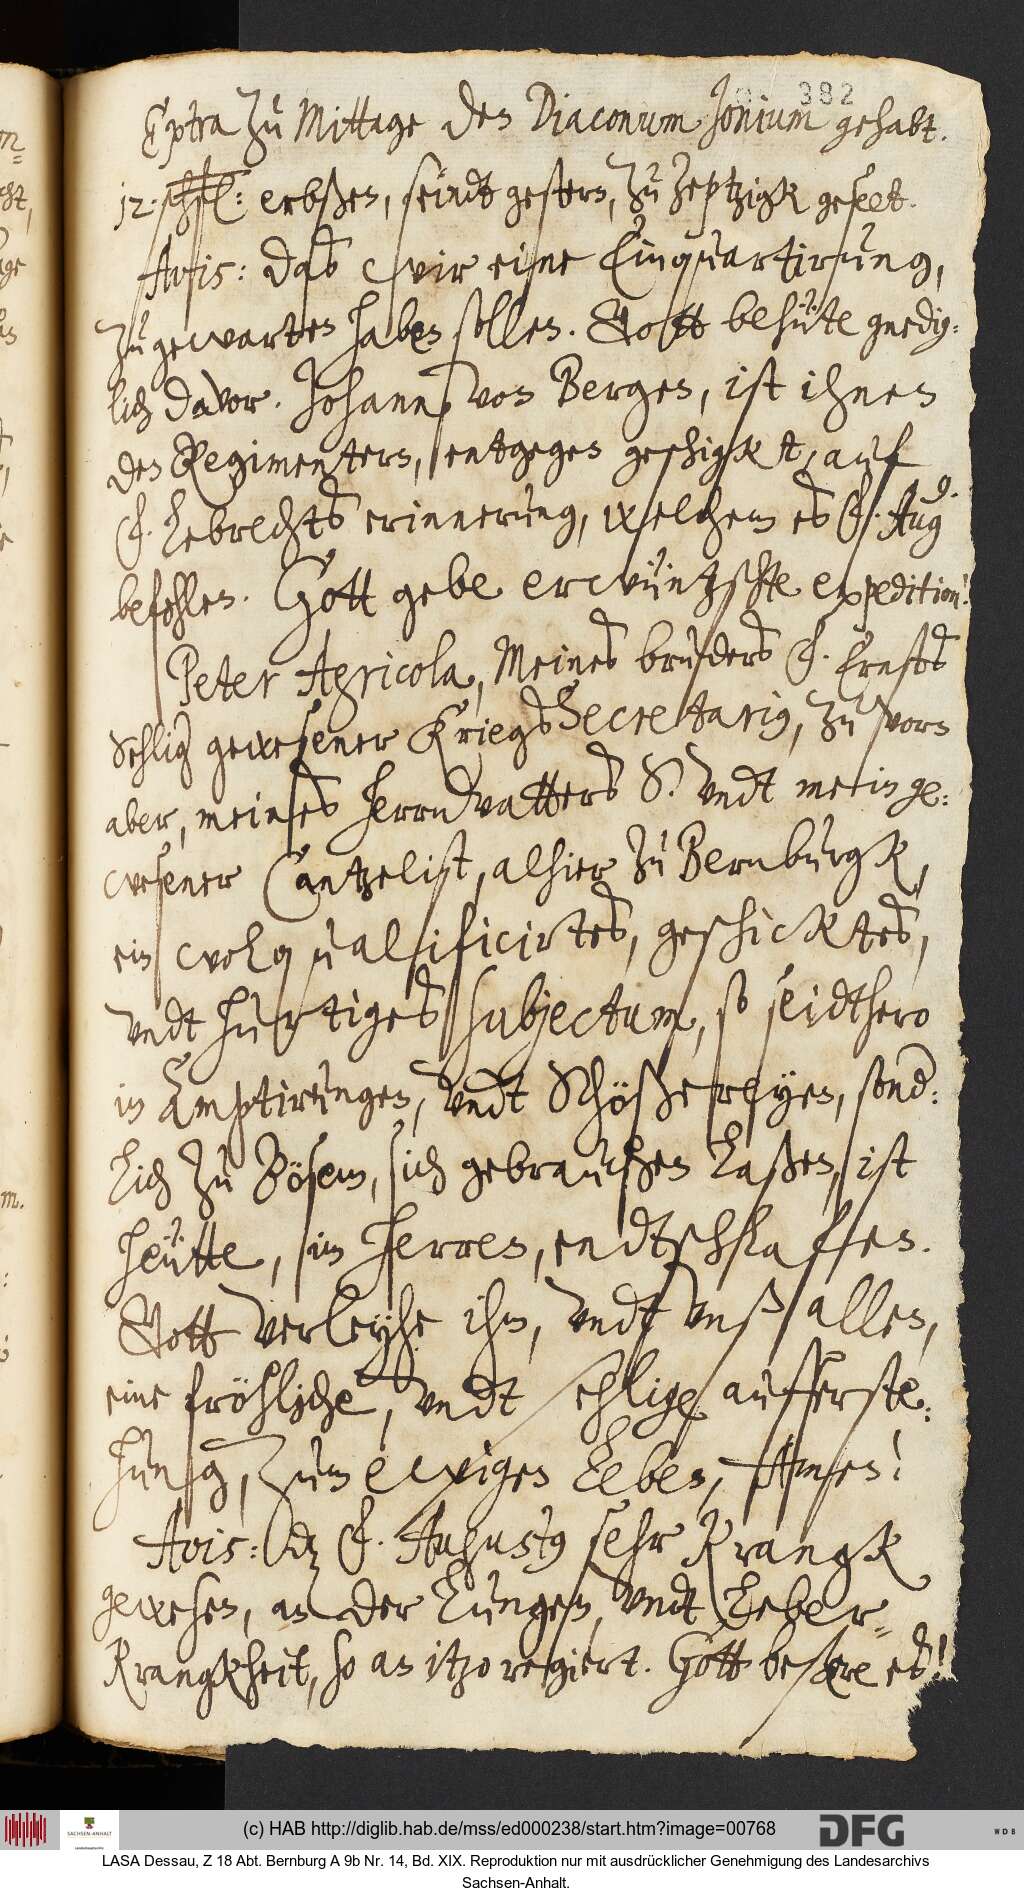 382
Extra zu Mittage den Diaconum Jonium gehabt.
12 schfl: erbßen, seindt gestern, zu Zeptzigk geseet.
Avis: das wir eine Einquartirung,
zu gewarten haben sollen. Gott behüte gnedig-
lich davor. Johann von Bergen, ist ihnen
den Regimentern, entgegen geschigkt, auf
F. Lebrechts erinnerung, welchem es F. Aug.
befohlen. Gott gebe erwüntzschte expedition!
Peter Agricola, Meines bruders F. Ernsts
Sehlig gewesener KriegsSecretarius, zu vorn
aber, meines Herrnvatters S. undt mein ge-
wesener Cantzelist, alhier zu Bernburgk,
ein wolqualificirtes, geschicktes,
undt hurtiges subjectum, so seidthero
in Amptirungen, undt Schößereyen, sond-
lich zu Bösem, sich gebrauchen laßen, ist
heütte, im Herren, endtschlaffen.
Gott verleyhe ihm, undt unß allen,
eine fröhliche, undt sehlige aufferste-
hung, zum ewigen Leben, Amen!
Avis: dz F. Augustus sehr Krangk
gewesen, an der Lungen, undt Leber-
Krangkheit, so an itzo regiert. Gott beßere es!
(c) HAB http://diglib.hab.de/mss/ed000238/start.htm?image=00768
SACHSEN-ANHALT
DFG
WDB
LASA Dessau, Z 18 Abt. Bernburg A 9b Nr. 14, Bd. XIX. Reproduktion nur mit ausdrücklicher Genehmigung des Landesarchivs
Sachsen-Anhalt.